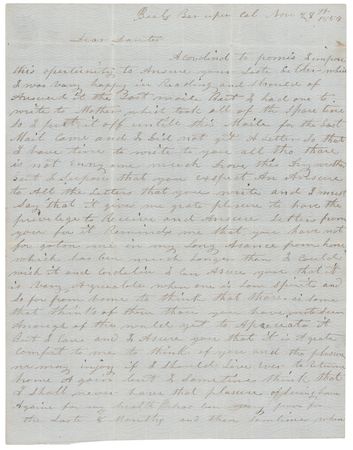 Cal Nov 28th 1859
Dear
Acordind to promis I improve
this opertunity to Ansure your Late Letter which
I was vary happy in Reading and should of
Ansured it the Last maile But I had one to
write to Mother which took all of the spare time
So I put it off untill this Maile for the Last
Mail Came and I did not git A Letter So that
I have time to write to you all tho there
is not any one much
but I Supose that you expect An Ansure
to All the Letters that you write and I must
Say that it gives me grate pleasure to have the
privelege to Receive and Ansure Letters from
you for it Reminds me that you have not
for goton me in my Long Absance from home
which has ben much Longer than I could
wish it and I can Asure you that it
is Vary Agreeable when one is low spirits and
So far from home to think that there is some
that thinks of them those you have not seen
Anough of the world yet to Apreciate it
But I can and I Asure you that it is A grate
comfort to me to think of you and the plasure
we may injoy if I Should Live ever to Return
home Again but I Sometimes think that
I Shall never have that plasure of Seeing home
Again for my health has ben vary poor for
the Last 2 Months and then sometimes when